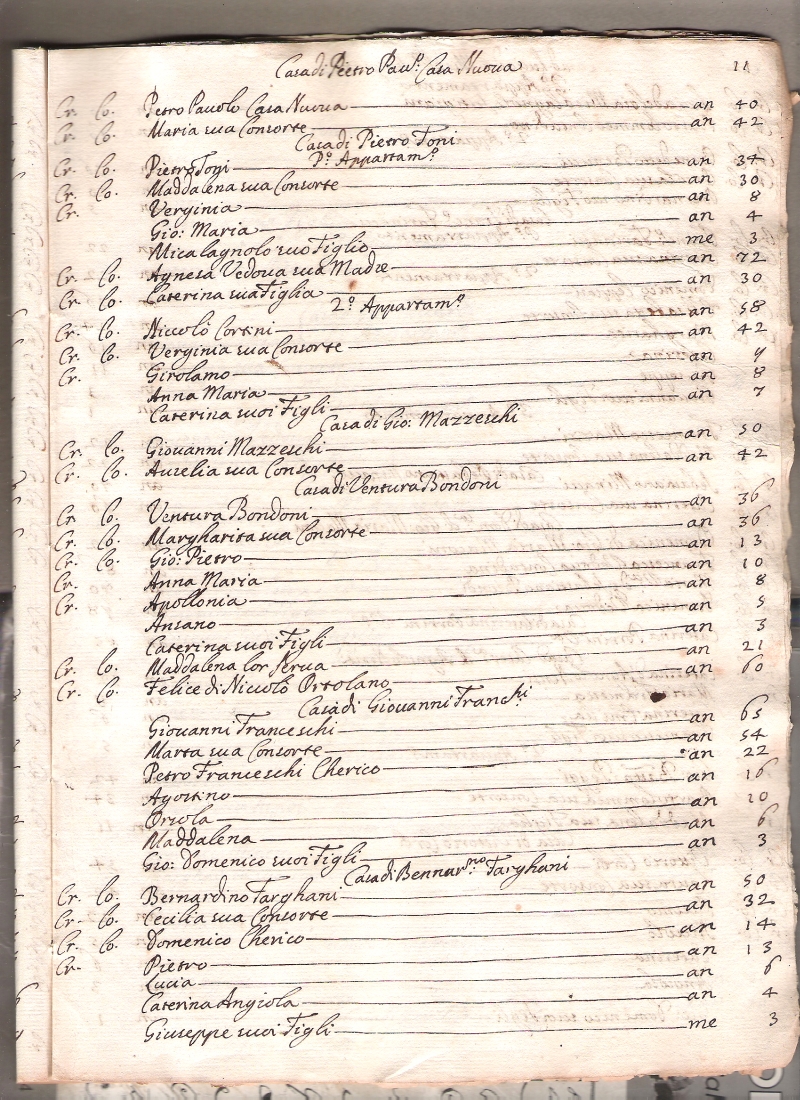 Casa di Pietro Pau.º Casa Nuova 11
Cr. Co. Petro Pauolo Casa Nuova an 40
Cr. Co. Maria sua Consorte an 42
Casa di Pietro Toni
Pº Appartam.º
Cr. Co. Pietro Toni an 34
Cr. Co. Maddalena sua Consorte an 30
Cr. Verginia an 8
Gio: Maria an 4
Micalagnolo suo Figlio me 3
Cr. Co. Agnesa Vedova sua Madre an 72
Cr. Co. Caterina sua Figlia an 30
2º Appartam.º
Cr. Co. Niccolò Cortini an 58
Cr. Co. Verginia sua Consorte an 42
Cr. Girolamo an 9
Anna Maria an 8
Caterina suoi Figli an 7
Casa di Gio: Mazzeschi
Cr. Co. Giovanni Mazzeschi an 50
Cr. Co. Aurelia sua Consorte an 42
Casa di Ventura Bondoni
Cr. Co. Ventura Bondoni an 36
Cr. Co. Margharita sua Consorte an 36
Cr. Co. Gio: Pietro an 13
Cr. Anna Maria an 10
Cr. Apollonia an 8
Ansano an 5
Caterina suoi Figli an 3
Cr. Co. Maddalena lor Serua an 21
Cr. Co. Felice di Niccolò Ortolano an 60
Casa di Giouanni Franchi
Giouanni Franceschi an 65
Marta sua Consorte an 54
Petro Franceschi Cherico an 22
Agostino an 16
Orsola an 10
Maddalena an 6
Gio: Domenico suoi Figli an 3
Casa di Bennar.mo Targhani
Cr. Co. Bernardino Targhani an 50
Cr. Co. Cecilia sua Consorte an 32
Cr. Co. Domenico Cherico an 14
Cr. Pietro an 13
Lucia an 6
Caterina Angiola an 4
Giuseppe suoi Figli me 3